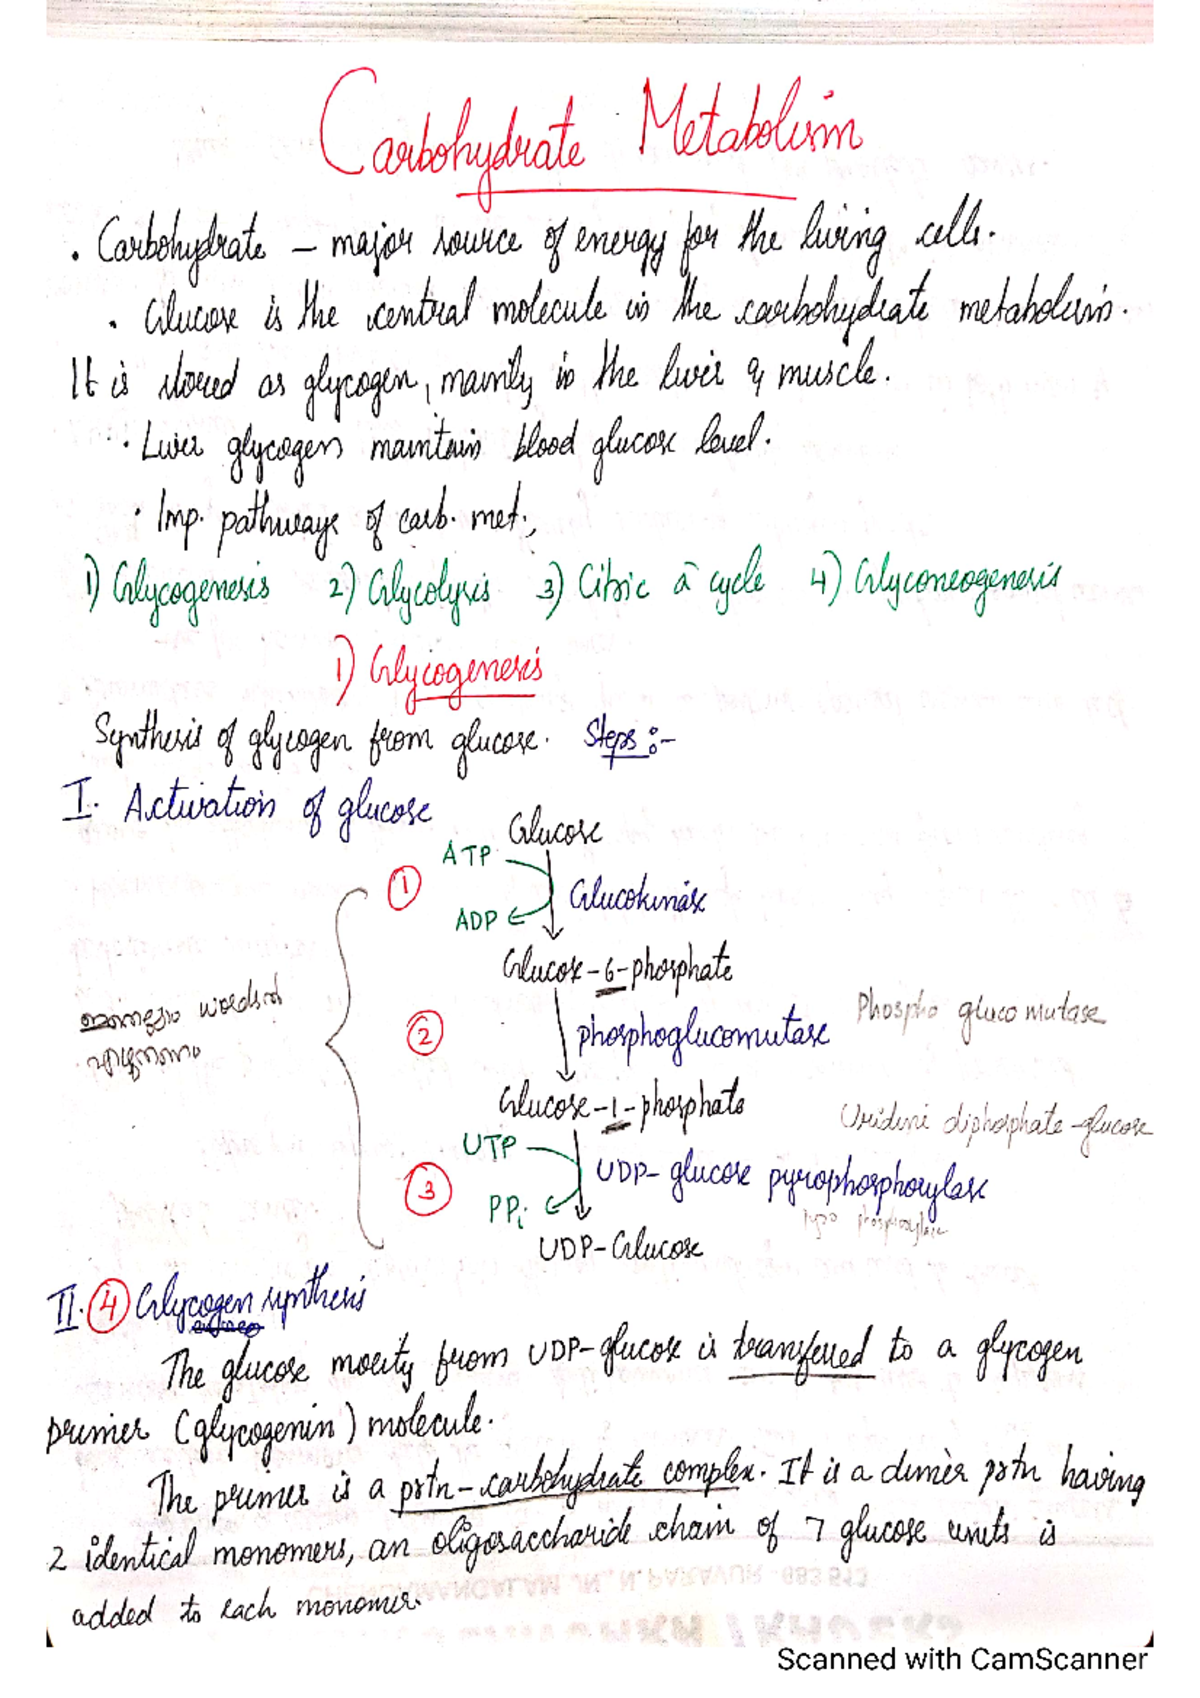 Carbohydrate Metabolism
• Carbohydrate – major source of energy for the living cells.
• Glucose is the central molecule in the carbohydrate metabolism.
It is stored as glycogen, mainly in the liver & muscle.
• Liver glycogen maintain blood glucose level.
• Imp. pathways of carb. met.;
1) Glycogenesis 2) Glycolysis 3) Citric ā cycle 4) Glyconeogenesis
1) Glycogenesis
Synthesis of glycogen from glucose. Steps :-
I. Activation of glucose
Glucose
ATP
① Glucokinase
ADP
Glucose-6-phosphate
② phosphoglucomutase Phospho gluco mutase
Glucose-1-phosphate
Uridine diphosphate-glucose
UTP
③ UDP-glucose pyrophosphorylase
PPi
UDP-Glucose
II. ④ Glycogen synthesis
The glucose moeity from UDP-glucose is transferred to a glycogen
primer (glycogenin) molecule.
The primer is a prtn-carbohydrate complex. It is a dimer prtn having
2 identical monomers, an oligosaccharide chain of 7 glucose units is
added to each monomer.
Scanned with CamScanner